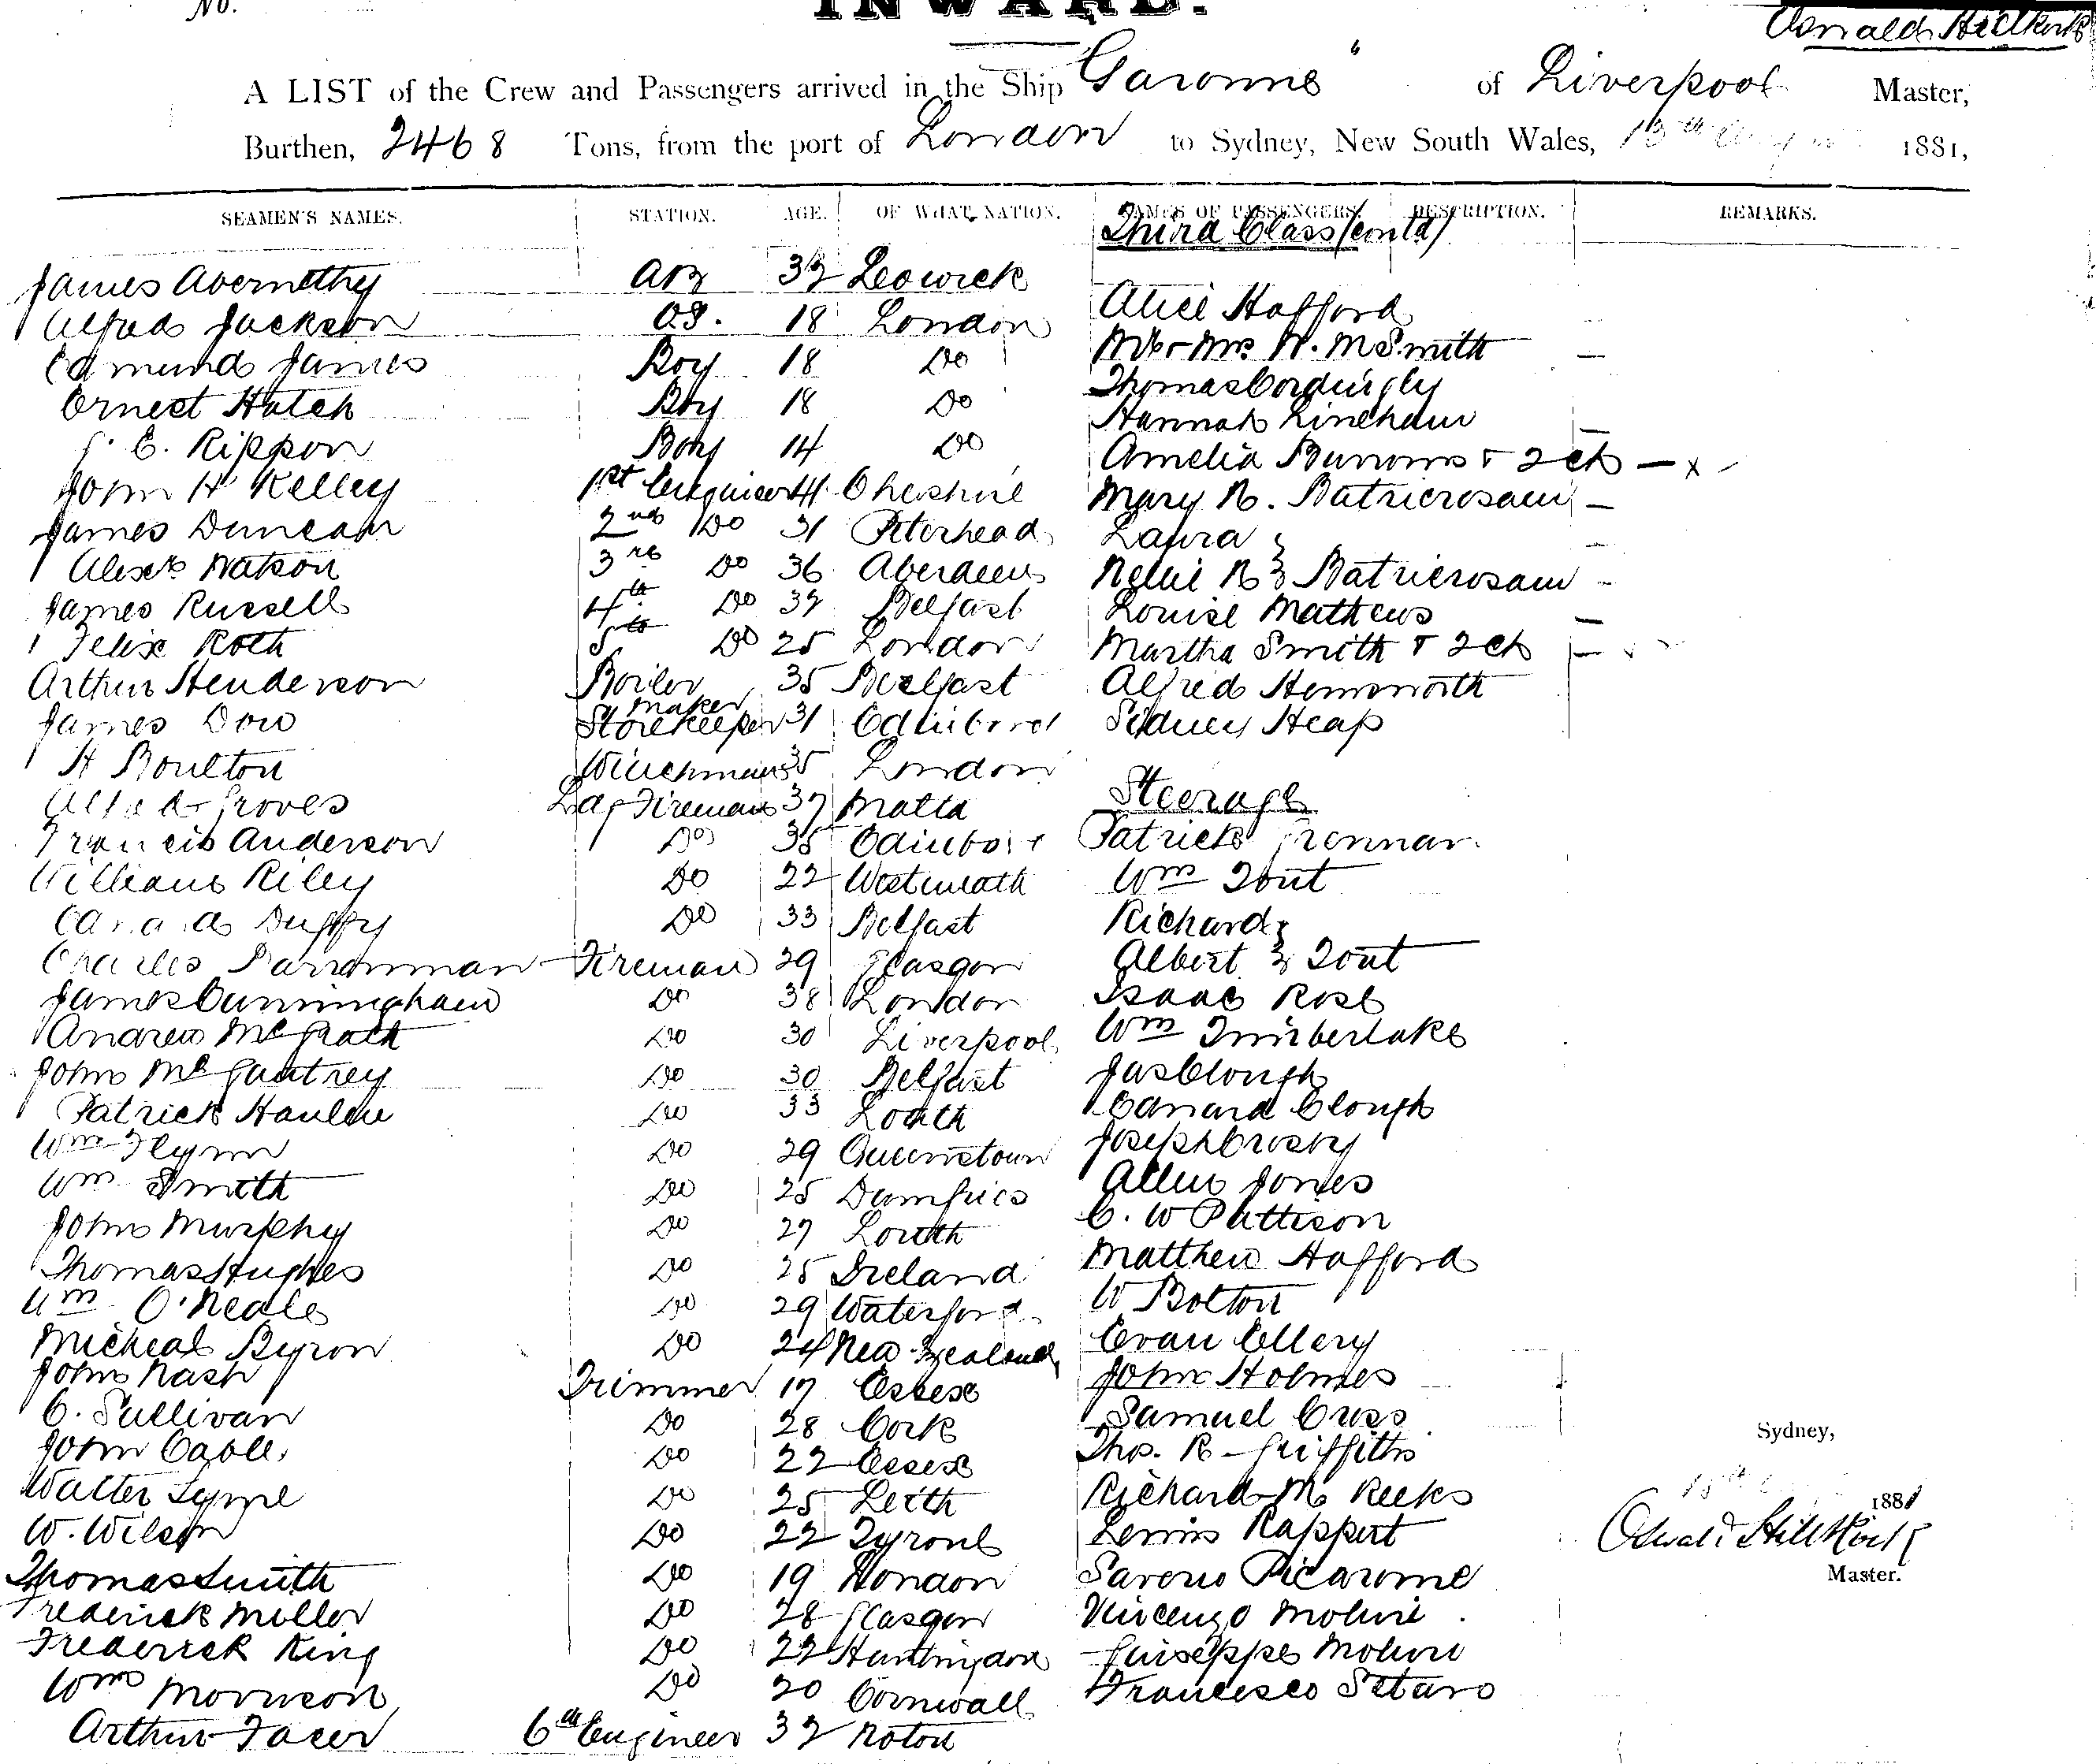 No.
INWARD.
A LIST of the Crew and Passengers arrived in the Ship "Garonne" of Liverpool Master,
Burthen, 2468 Tons, from the port of London to Sydney, New South Wales, 13th 1881,
SEAMEN'S NAMES. STATION. AGE. OF WHAT NATION. NAMES OF PASSENGERS. DESCRIPTION. REMARKS.
Third Class (contd)
James Abernethy AB 32 Lerwick
Alice Hafford
Alfred Jackson OS. 18 London
Mr & Mrs W. M Smith
Edmund James Boy 18 Do
Thomas Cordingly
Ernest Hatch Boy 18 Do
Hannah Lineham
E. Rippon Boy 14 Do
Amelia Burrows & 2 ch x
John H Kelley 1st Engineer 41 Cheshire
Mary R.
James Duncan 2nd Do 31 Peterhead
Laura }
Alexr Watson 3rd Do 36 Aberdeen
Nellie R }
James Russell 4th Do 32 Belfast
Louise Mathews
Felix Roth 5th Do 25 London
Martha Smith & 2 ch
Arthur Henderson Boiler maker 35 Belfast
Alfred Hemsworth
James Dow Storekeeper 31
Sidney Heap
H Boulton Winchman 35 London
Steerage
Alfred Groves Ldg Fireman 37 Malta
Francis Anderson Do 35
Patrick
William Riley Do 22 Westmeath
Wm Tout
Duffy Do 33 Belfast
Richard }
Charles Fireman 29 Glasgow
Albert } Tout
James Cunningham Do 38 London
Isaac Rose
Andrew McGrath Do 30 Liverpool
Wm Timberlake
John McGautrey Do 30 Belfast
Jas Clough
Patrick Hanlon Do 33 Louth
Edward Clough
Wm Flynn Do 29 Queenstown
Joseph Crosby
Wm Smith Do 25 Dumfries
Allen Jones
John Murphy Do 27 Louth
C. W Pattison
Thomas Hughes Do 25 Ireland
Matthew Hafford
Wm O'Neale Do 29 Waterford
W Bolton
Micheal Byron Do 24 New Zealand
Evan Ellery
John Nash Trimmer 17 Essex
John Holmes
C. Sullivan Do 28 Cork
Samuel Cross
Sydney,
John Cable Do 22 Essex
Thos. R Griffiths
Walter Lyme Do 25 Leith
Richard M Reeks
1881
W. Wilson Do 22 Tyrone
Lewis Rappert
Thomas Smith Do 19 London
Saverio Picarone
Master.
Frederick Miller Do 28 Glasgow
Vincenzo
Frederick King Do 22 Huntingdon
Guiseppe
Wm Morrison Do 20 Cornwall
Francesco Setaro
Arthur Facer 6th Engineer 32